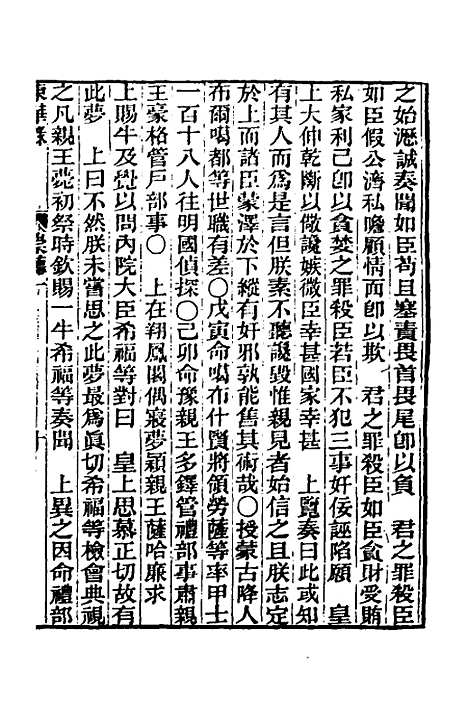 之始瀝誠奏聞如臣苟且塞責畏首畏尾卽以負　君之罪殺臣
如臣假公濟私瞻顧情面卽以欺　君之罪殺臣如臣貪財受賄
私家利己卽以貪婪之罪殺臣若臣不犯三事奸佞誣陷願　皇
上大伸乾斷以儆讒嫉微臣幸甚國家幸甚　上覽奏曰此或知
有其人而爲是言但朕素不聽讒毀惟親見者始信之且朕志定
於上而諸臣蒙澤於下縱有奸邪孰能售其術哉○授蒙古降人
布爾噶都等世職有差○戊寅命噶布什賢將領勞薩等率甲士
一百十八人往明國偵探○己卯命豫親王多鐸管禮部事肅親
王豪格管戶部事○　上在翔鳳閣偶寢夢穎親王薩哈廉求
上賜牛及覺以問內院大臣希福等對曰　皇上思慕正切故有
此夢　上曰不然朕未嘗思之此夢最爲眞切希福等檢會典視
之凡親王薨初祭時欽賜一牛希福等奏聞　上異之因命禮部
東華錄